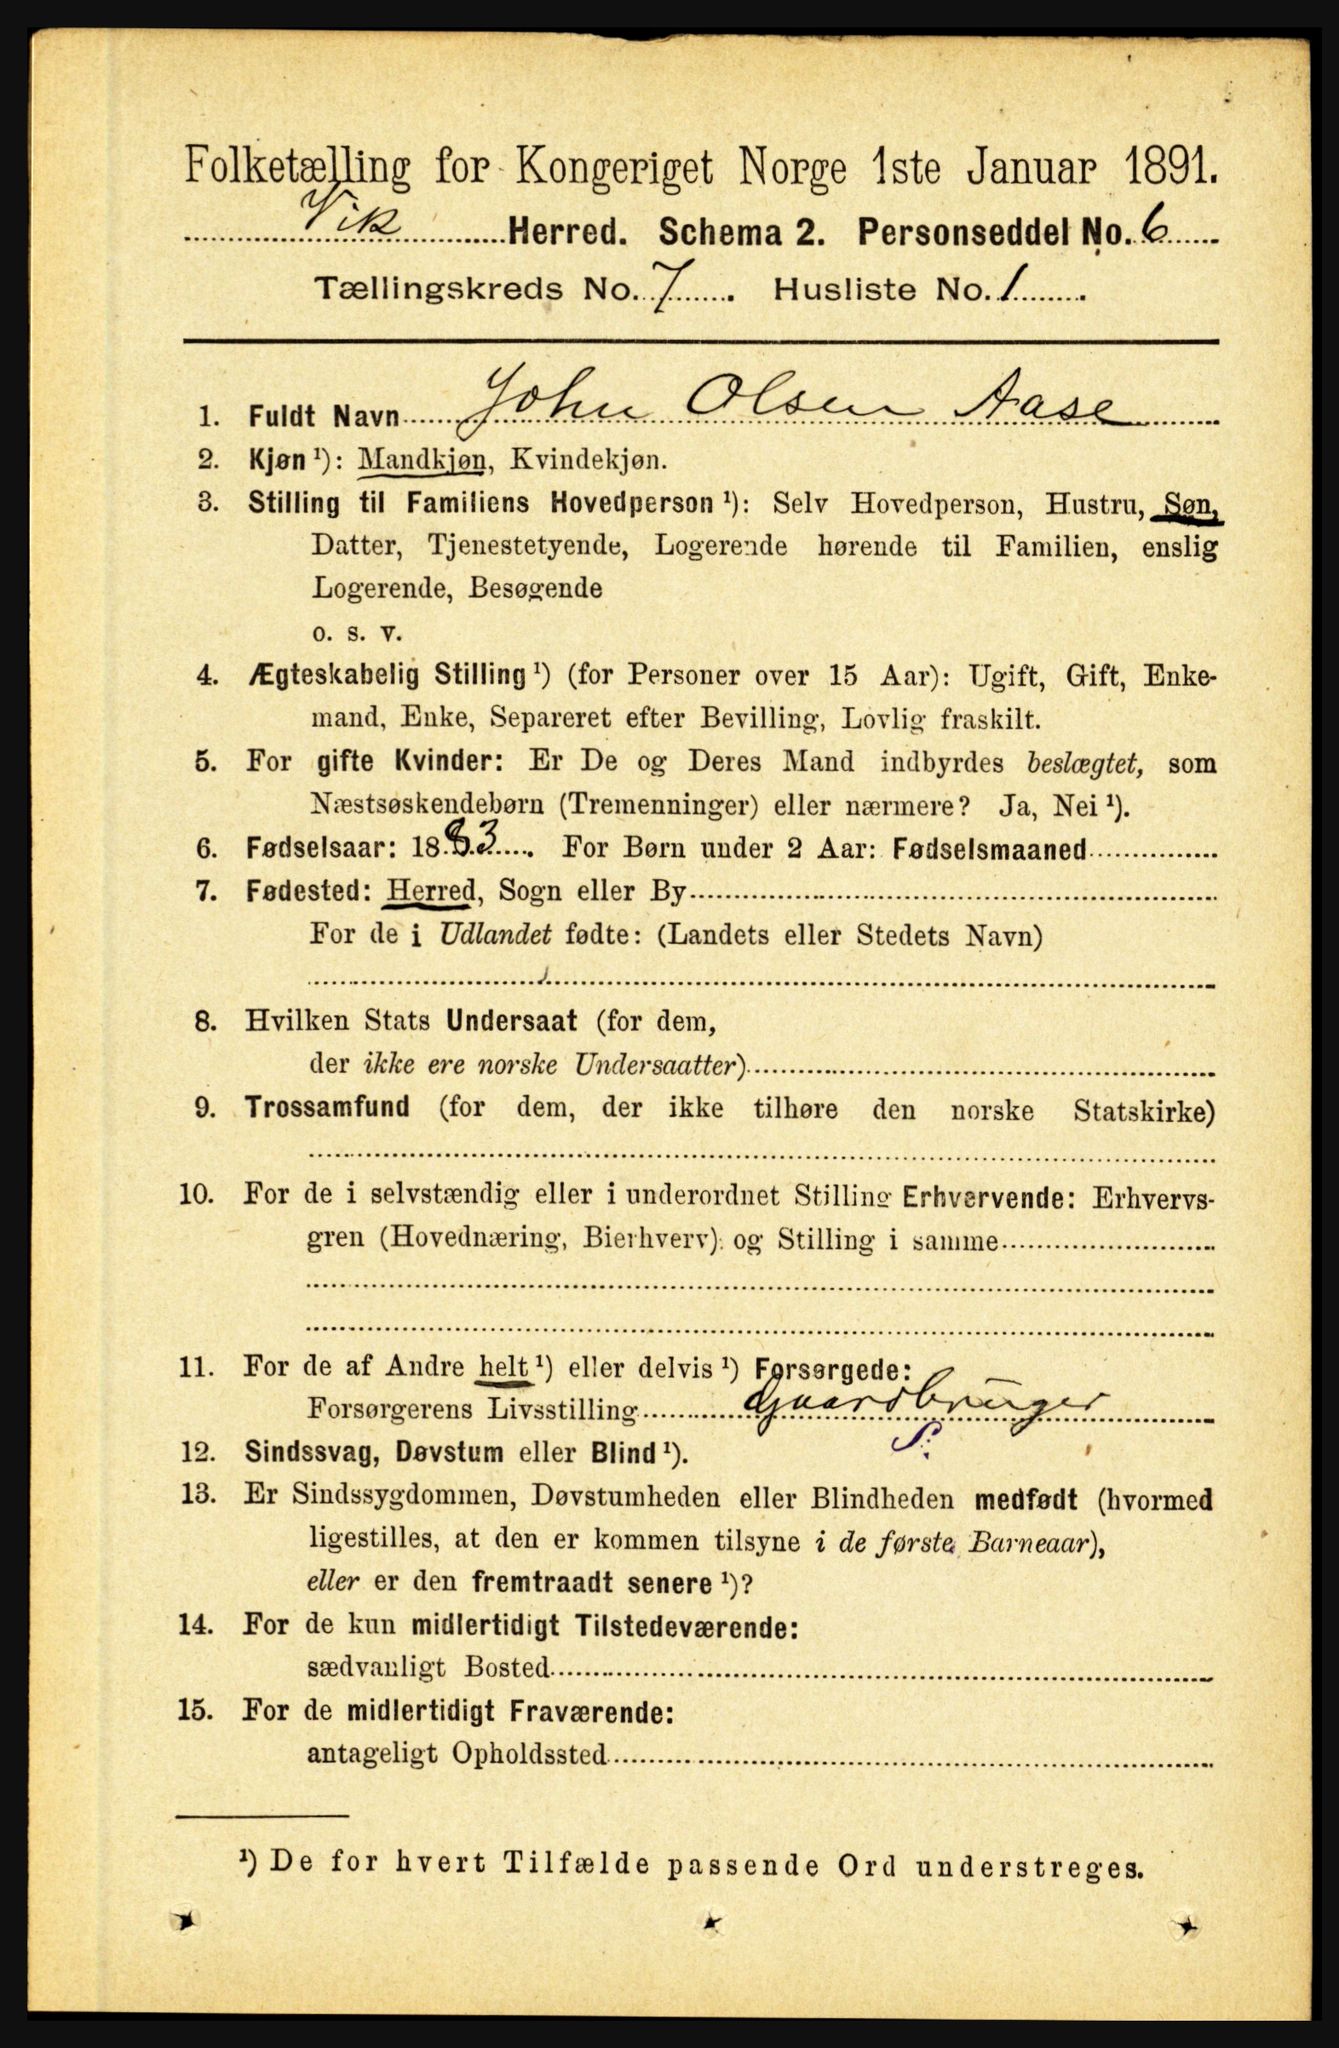 Folketælling for Kongeriget Norge 1ste Januar 1891.
Vik Herred. Schema 2. Personseddel No. 6
Tællingskreds No. 7. Husliste No. 1.
1. Fuldt Navn John Olsen Aase
2. Kjøn ¹): Mandkjøn, Kvindekjøn.
3. Stilling til Familiens Hovedperson ¹): Selv Hovedperson, Hustru, Søn,
Datter, Tjenestetyende, Logerende hørende til Familien, enslig
Logerende, Besøgende
o. s. v.
4. Ægteskabelig Stilling ¹) (for Personer over 15 Aar): Ugift, Gift, Enke-
mand, Enke, Separeret efter Bevilling, Lovlig fraskilt.
5. For gifte Kvinder: Er De og Deres Mand indbyrdes beslægtet, som
Næstsøskendebørn (Tremenninger) eller nærmere? Ja, Nei ¹).
6. Fødselsaar: 1883. For Børn under 2 Aar: Fødselsmaaned
7. Fødested: Herred, Sogn eller By
For de i Udlandet fødte: (Landets eller Stedets Navn)
8. Hvilken Stats Undersaat (for dem,
der ikke ere norske Undersaatter)
9. Trossamfund (for dem, der ikke tilhøre den norske Statskirke)
10. For de i selvstændig eller i underordnet Stilling Erhvervende: Erhvervs-
gren (Hovednæring, Bierhverv) og Stilling i samme
11. For de af Andre helt ¹) eller delvis ¹) Forsørgede:
Forsørgerens Livsstilling Gaardbruger
S.
12. Sindssvag, Døvstum eller Blind ¹).
13. Er Sindssygdommen, Døvstumheden eller Blindheden medfødt (hvormed
ligestilles, at den er kommen tilsyne i de første Barneaar),
eller er den fremtraadt senere ¹)?
14. For de kun midlertidigt Tilstedeværende:
sædvanligt Bosted
15. For de midlertidigt Fraværende:
antageligt Opholdssted
¹) De for hvert Tilfælde passende Ord understreges.